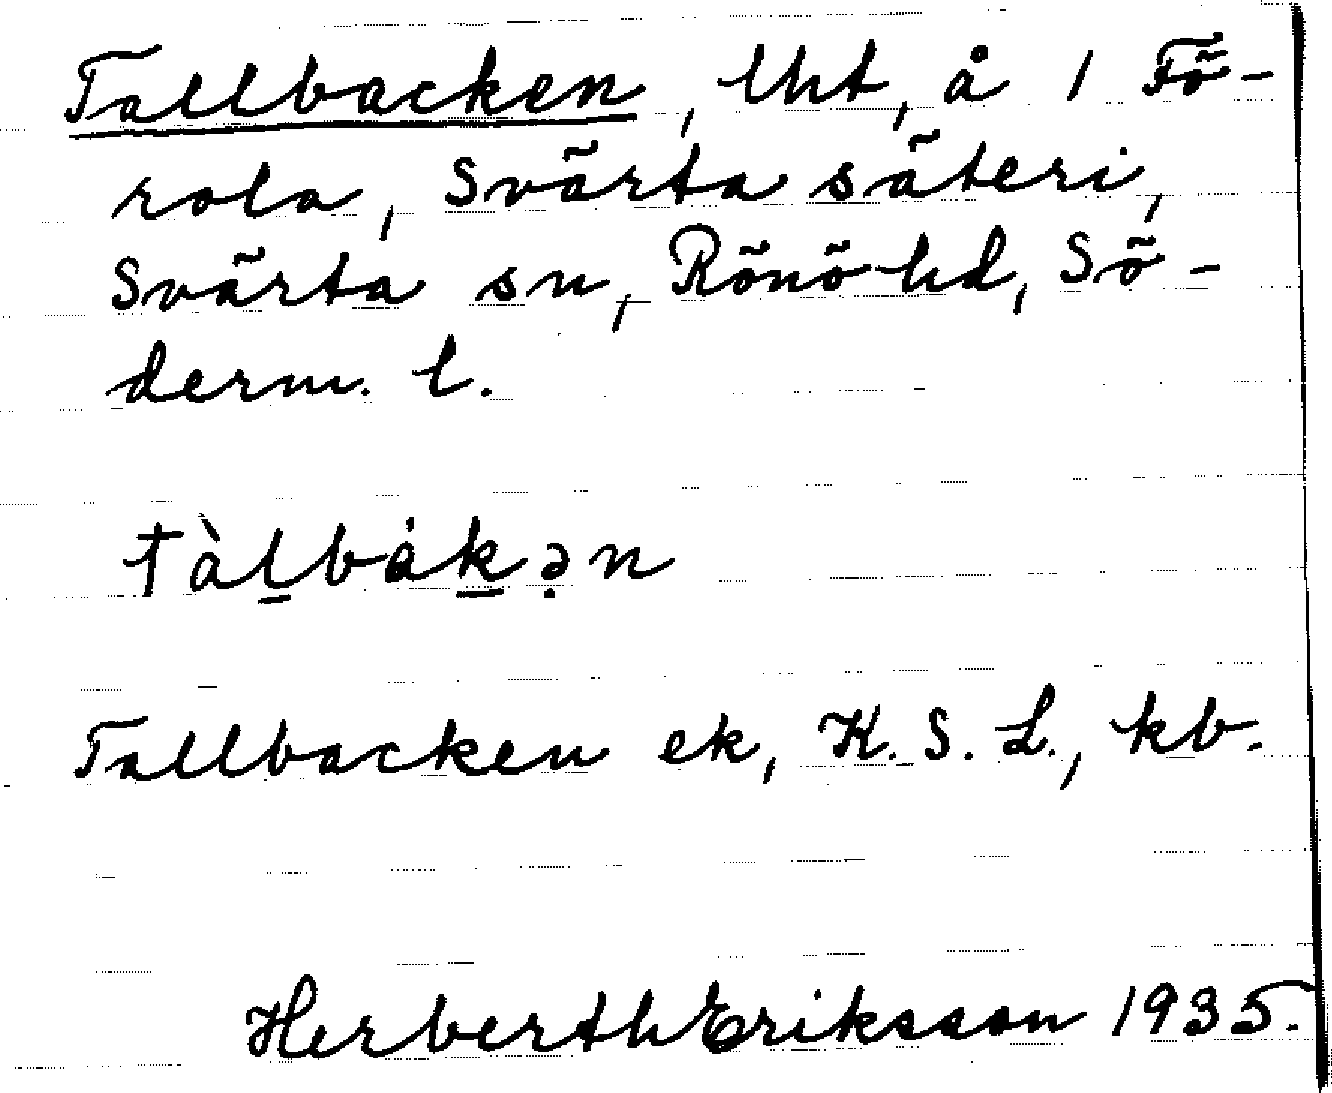 Tallbacken, lht, å 1 Fõ-
rola, Svãrta sãteri,
Svãrta sn, Rõnõ hd, Sõ-
derm. l.
tàl̲bȧk̲ə̣n
Tallbacken ek, K. S. L., kb.
Herberth Eriksson 1935.